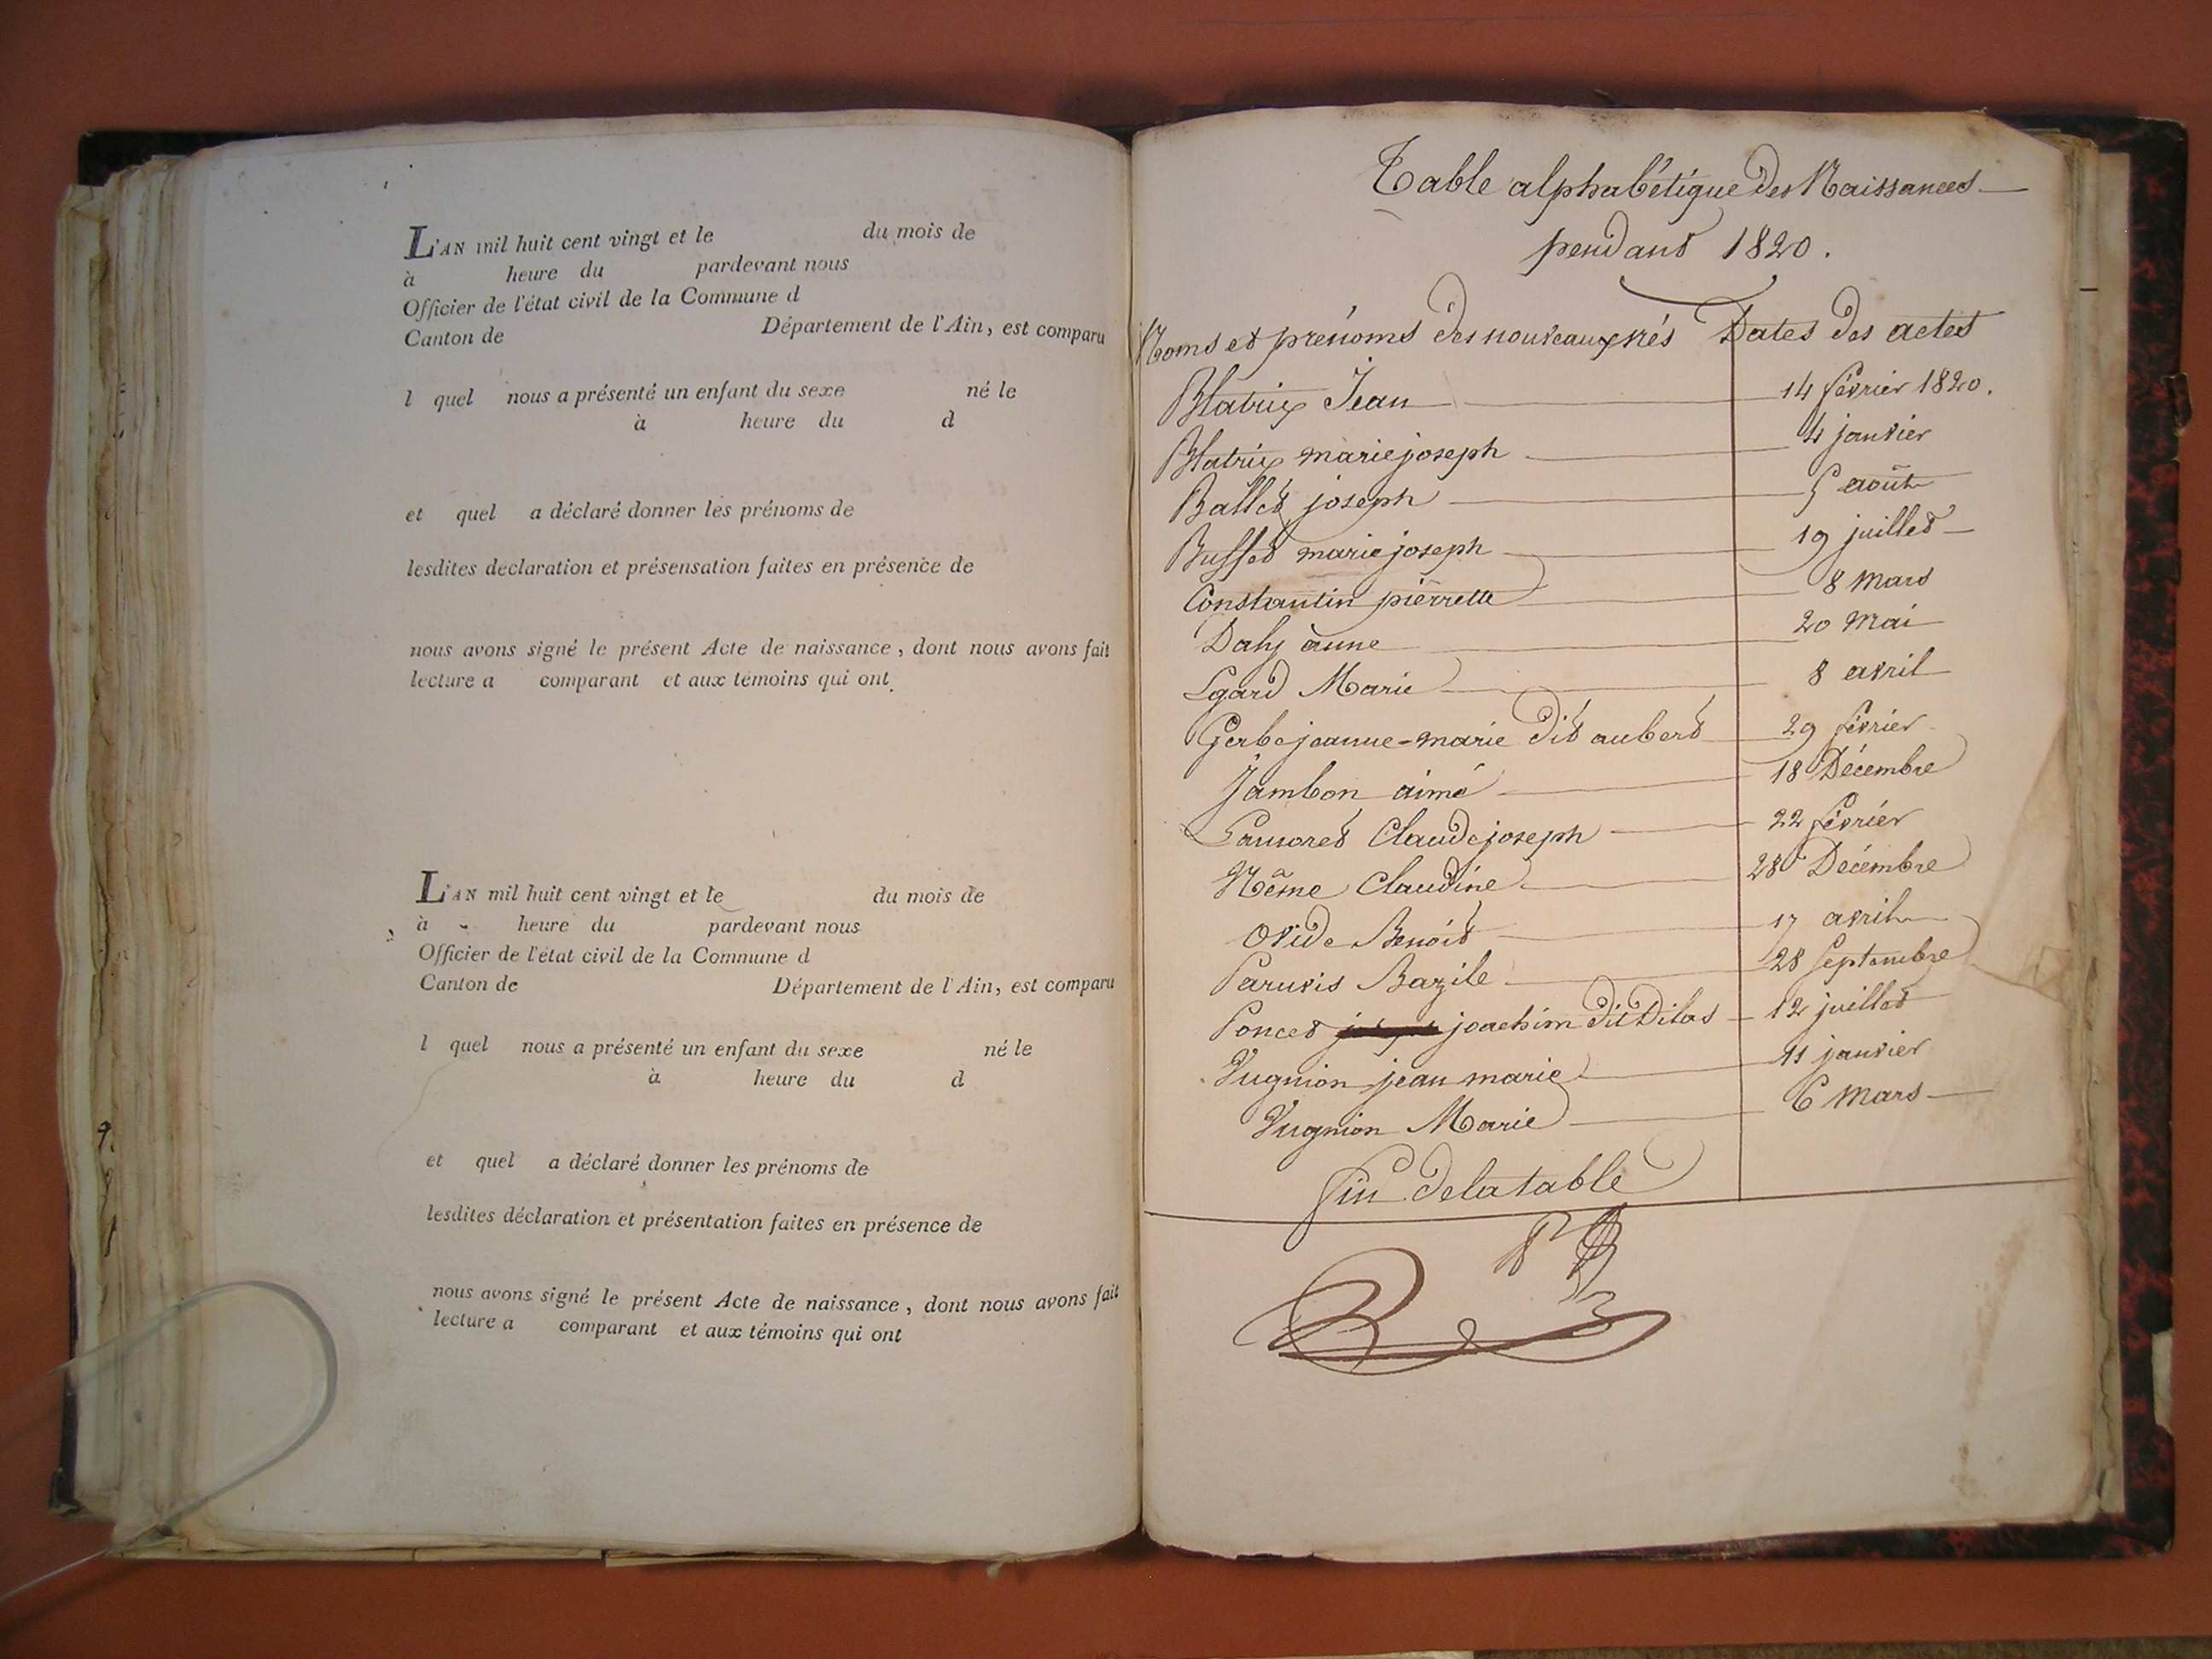 L'AN mil huit cent vingt et le du mois de
à heure du pardevant nous
Officier de l'état civil de la Commune d
Canton de Département de l'Ain, est comparu
l quel nous a présenté un enfant du sexe né le
à heure du d
et quel a déclaré donner les prénoms de
lesdites declaration et présensation faites en présence de
nous avons signé le présent Acte de naissance, dont nous avons fait
lecture a comparant et aux témoins qui ont
L'AN mil huit cent vingt et le du mois de
à heure du pardevant nous
Officier de l'état civil de la Commune d
Canton de Département de l'Ain, est comparu
l quel nous a présenté un enfant du sexe né le
à heure du d
et quel a déclaré donner les prénoms de
lesdites déclaration et présentation faites en présence de
nous avons signé le présent Acte de naissance, dont nous avons fait
lecture a comparant et aux témoins qui ont
Table alphabétique des Naissances
pendant 1820.
Noms et prénoms des nouveaux nés Dates des actes
Blatrix Jean 14 février 1820.
Blatrix marie joseph 4 janvier
Ballet joseph 5 août
Buffet marie joseph 19 juillet
Constantin pierrette 8 mars
Daly anne 20 mai
Egard Marie 8 avril
Gerbe jeanne-marie dit aubert 29 février
Jambon aimé 18 Décembre
Lamoret Claude joseph 22 février
Nême Claudine 28 Décembre
Ovide Benoit 17 avril
Paruvis Bazile 28 Septembre
Poncet joachim dit Dilas 12 juillet
Vugnion jean marie 11 janvier
Vugnion Marie 6 Mars
fin de la table